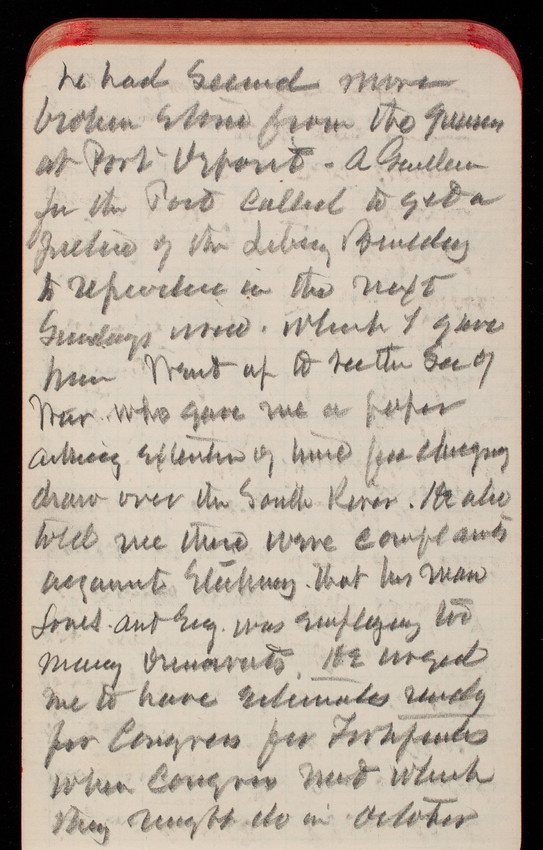 he had secured more
broken stone from the
at Port Deposit - A Gentleman
for the Post called to get a
picture of the Library Building
to reproduce in the next
Sundays issue. Which I gave
him Went up to see the Sec of
War who gave me a paper
asking extention of time for changing
draw over the South River. He also
told me there were complaints
against Stickney. that his man
Jones. ant Eng. was employing too
many Democrats. He urged
me to have estimates ready
for Congress for Fortifications
when Congress meet which
they might do in October